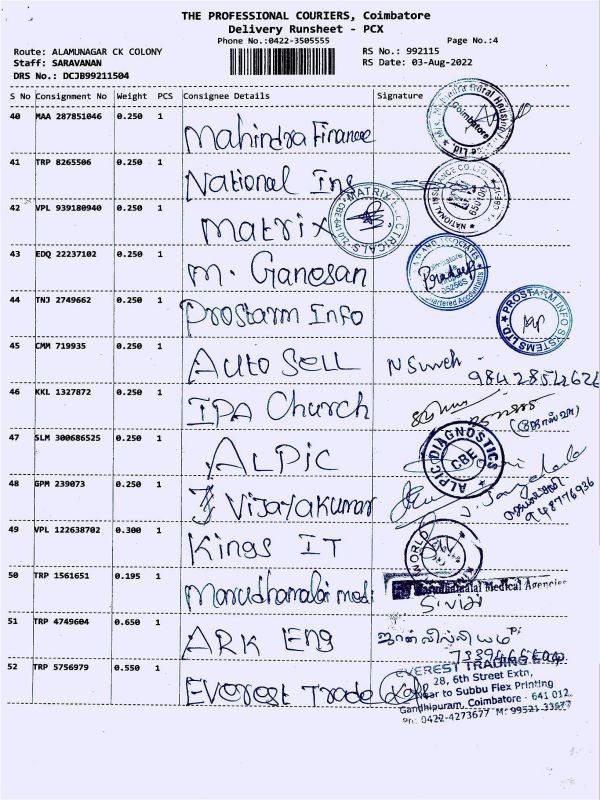 THE PROFESSIONAL COURIERS, Coimbatore
Delivery Runsheet - PCX
Phone No.:0422-3505555
Page No.:4
Route: ALAMUNAGAR CK COLONY
RS No.: 992115
Staff: SARAVANAN
RS Date: 03-Aug-2022
DRS No.: DCJB99211504
S No Consignment No Weight PCS Consignee Details Signature
40 MAA 287851046 0.250 1
Mahindra Finance
Coimbatore
41 TRP 8265506 0.250 1
National Ins
650100
42 VPL 939180940 0.250 1
Matrix
MATRIX
43 EDQ 22237102 0.250 1
M. Ganesan
Chartered Accountants
44 TNJ 2749662 0.250 1
Prostarm Info
PROSTARM INFO SYSTEMS LTD.
45 CMM 719935 0.250 1
Auto Sell
46 KKL 1327872 0.250 1
IPA Church
47 SLM 300686525 0.250 1
ALPIC
ALPIC DIAGNOSTICS
CBE
48 GPM 239073 0.250 1
Vijayakumar
948776936
49 VPL 122638702 0.300 1
Kings IT
WORLD
50 TRP 1561651 0.195 1
Marudhamalai medi
Medical Agencies
51 TRP 4749604 0.650 1
ARK Eng
52 TRP 5756979 0.550 1
Everest Trade
EVEREST TRADING
28, 6th Street Extn,
Near to Subbu Flex Printing
Gandhipuram, Coimbatore - 641 012.
Ph: 0422-4273677 M: 99521 33677